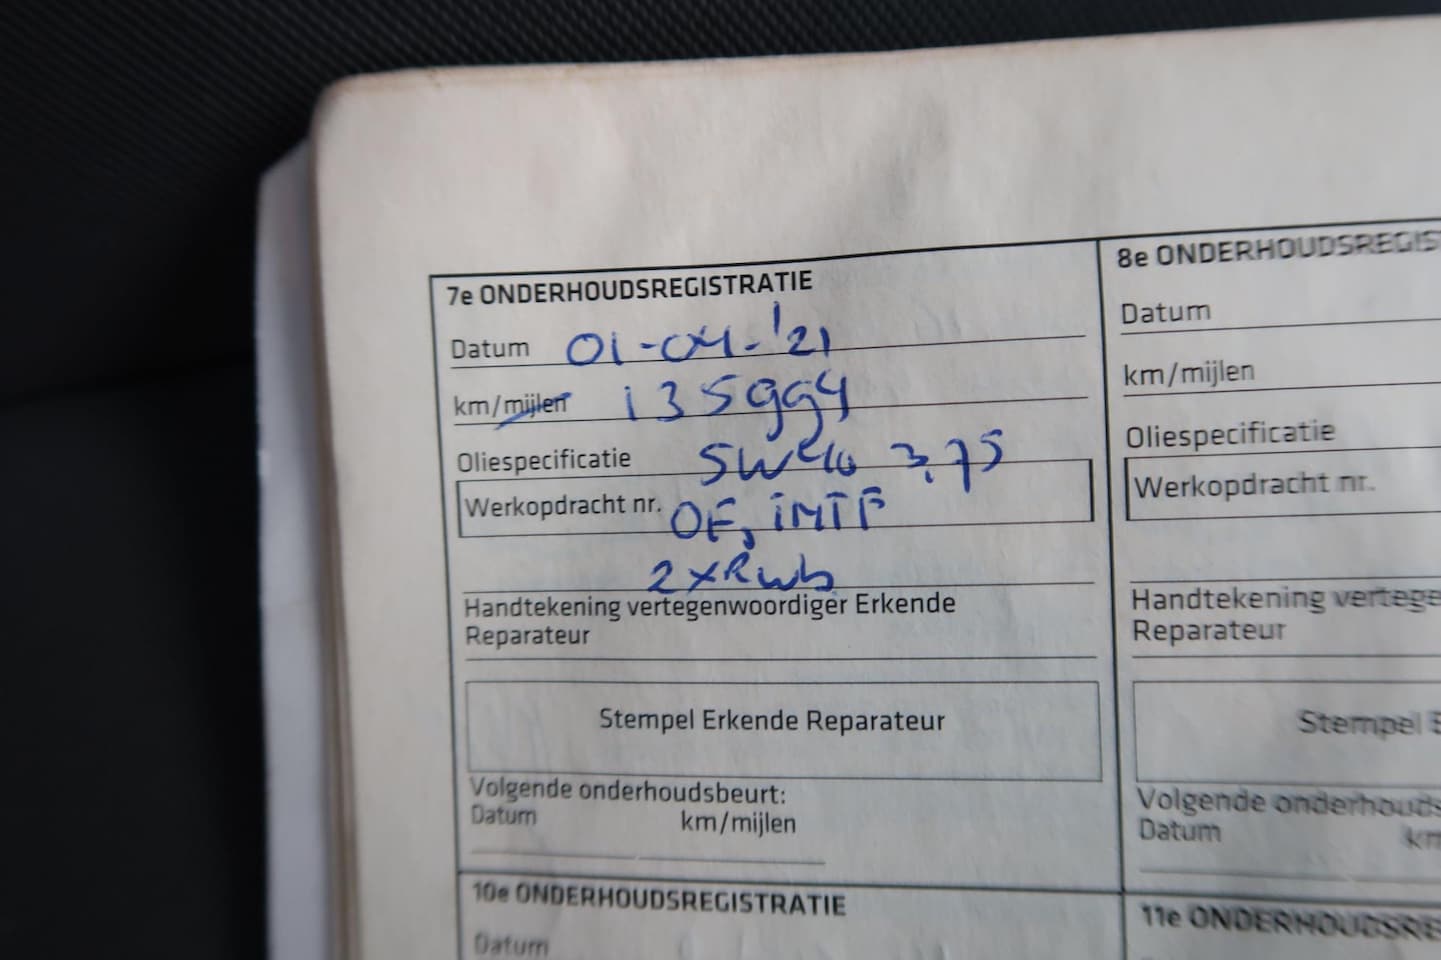 7e ONDERHOUDSREGISTRATIE
Datum 01-04-'21
km/mijlen 135994
Oliespecificatie 5W40 3,75
Werkopdracht nr. OF, iMTF
2xRwb
Handtekening vertegenwoordiger Erkende
Reparateur
Stempel Erkende Reparateur
Volgende onderhoudsbeurt:
Datum km/mijlen
8e ONDERHOUDSREGIS
Datum
km/mijlen
Oliespecificatie
Werkopdracht nr.
Handtekening vertege
Reparateur
Stempel E
Volgende onderhouds
Datum km
10e ONDERHOUDSREGISTRATIE
Datum
11e ONDERHOUDSRE